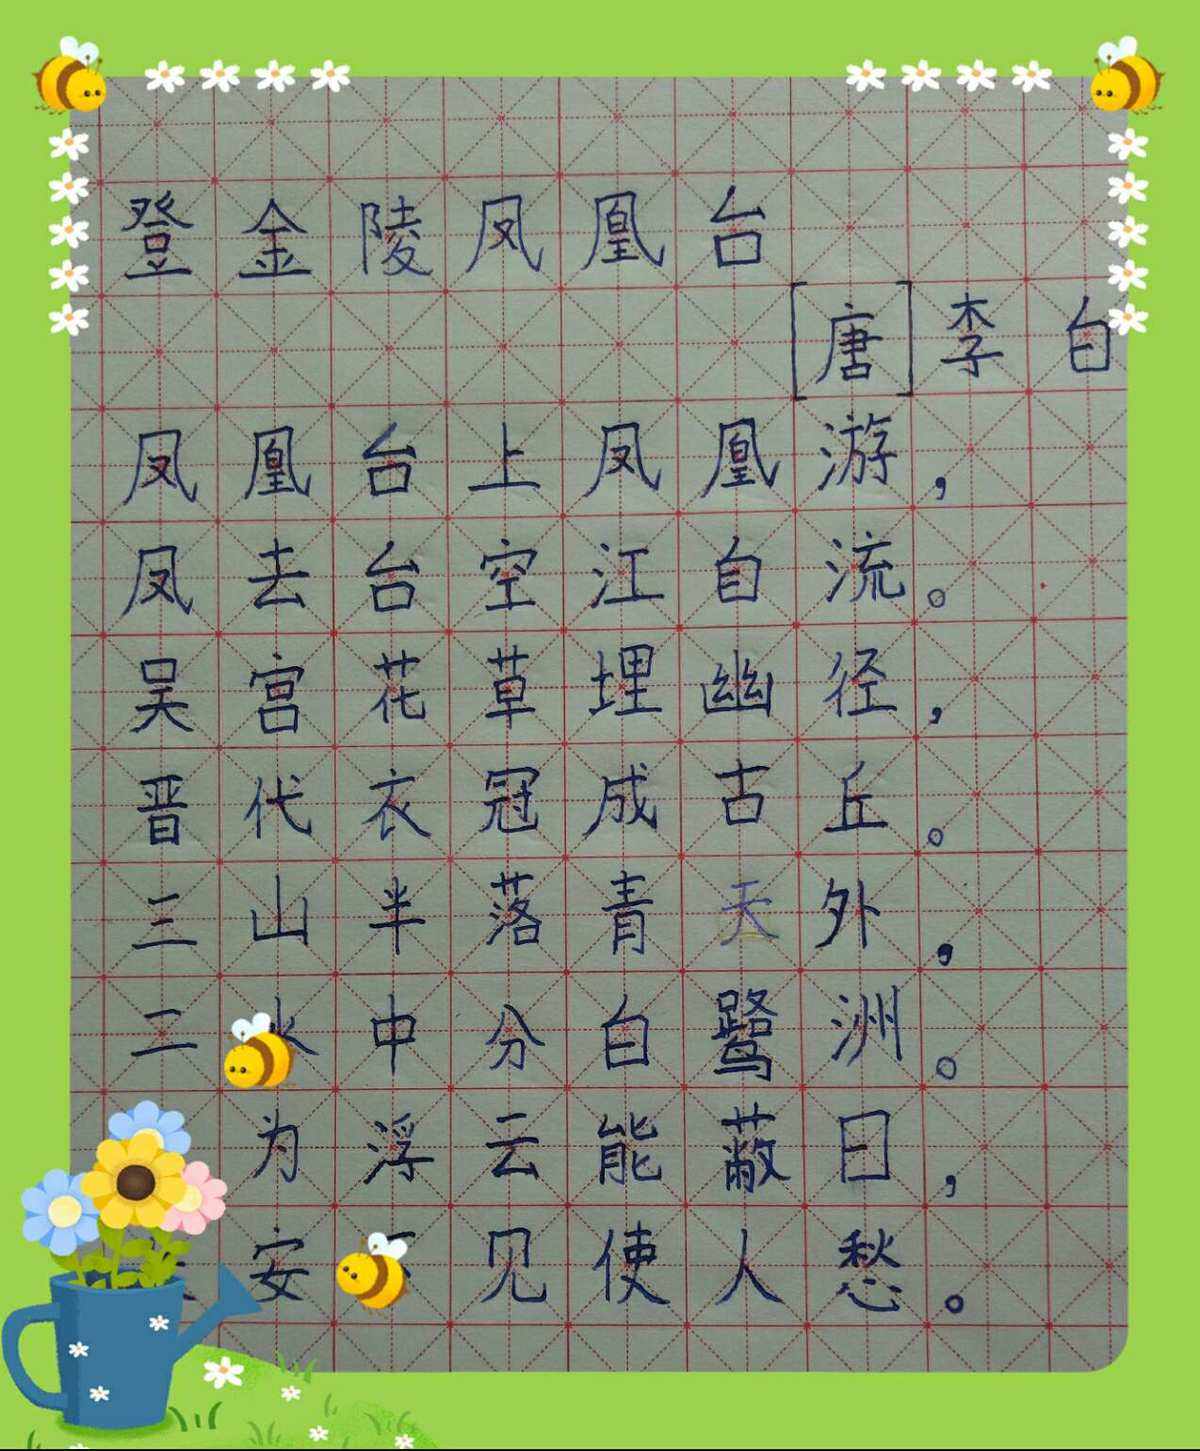 登金陵凤凰台
[唐]李白
凤凰台上凤凰游，
凤去台空江自流。
吴宫花草埋幽径，
晋代衣冠成古丘。
三山半落青天外，
二水中分白鹭洲。
为浮云能蔽日，
安见使人愁。